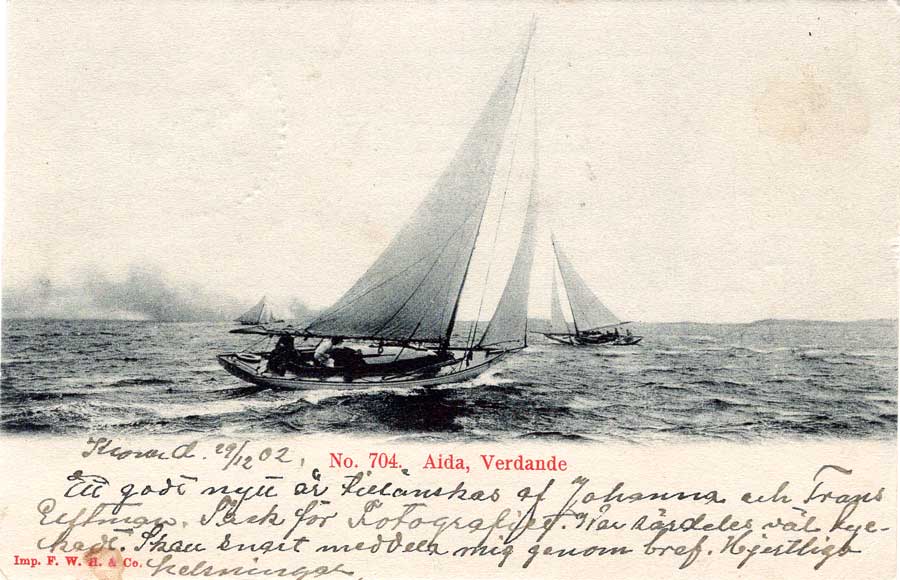 29/12 02,
No. 704. Aida, Verdande
Ett godt nytt år tillönskas af Johanna och Frans
Tack för Fotografiet. Var särdeles väl lyc-
kadt. Skall snart meddela mig genom bref. Hjertliga
helsningar
Imp. F. W. H. & Co.